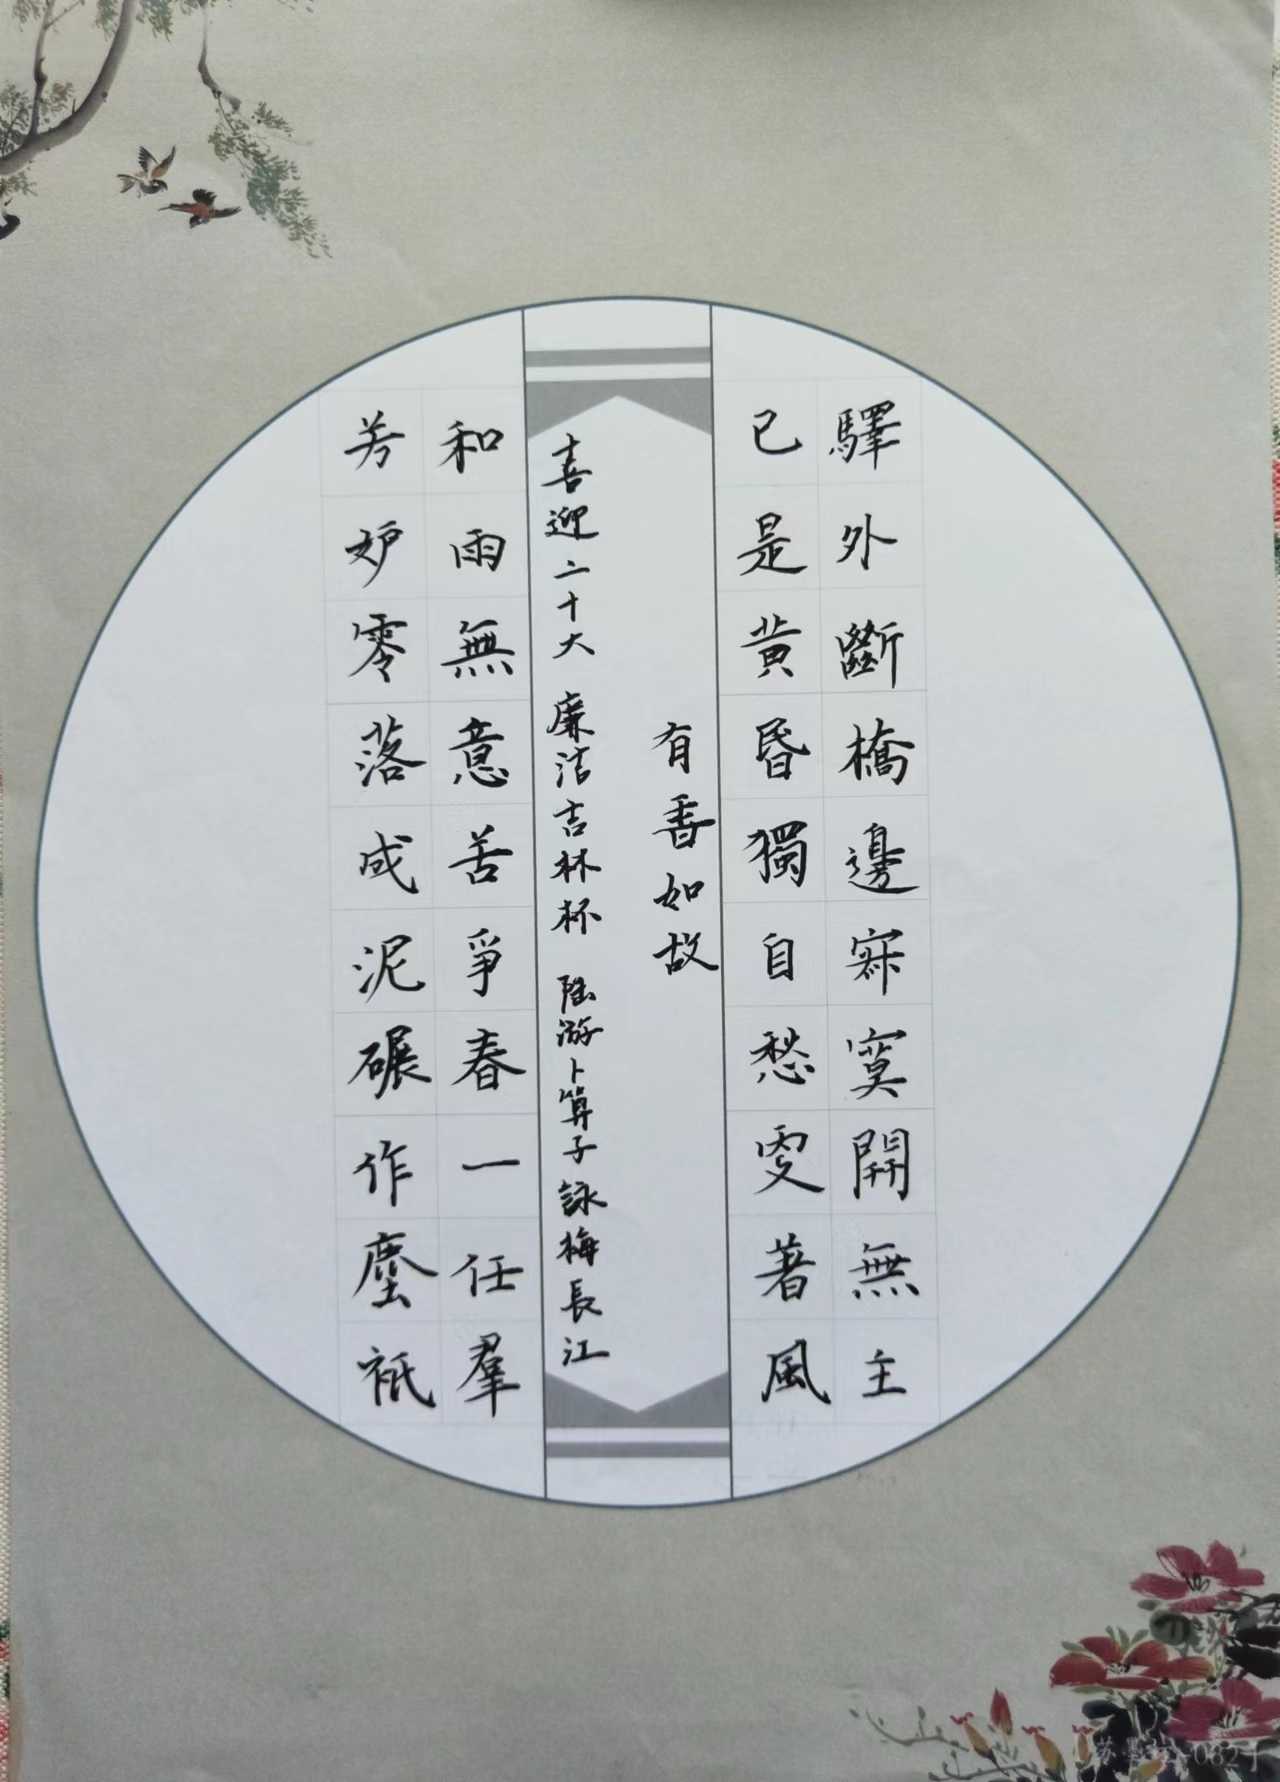 驛外斷橋邊寂寞開無主
已是黃昏獨自愁更著風
有香如故
喜迎二十大 廉洁吉林杯 陆游卜算子詠梅長江
和雨無意苦爭春一任羣
芳妒零落成泥碾作塵衹